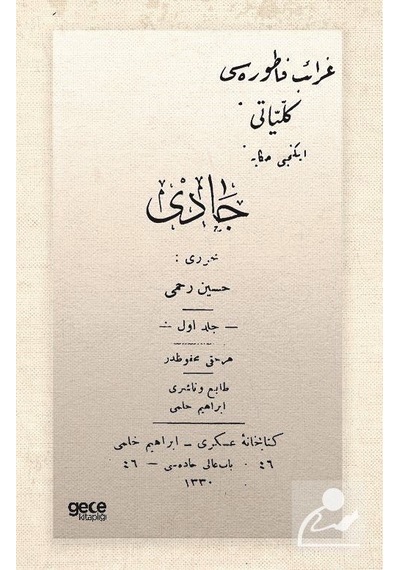 غرائب فاطوره‌سی
كلّیّاتی
ایكنجی حكایه
جادی
محرری :
حسین رحمی
— جلد اول —
هر حقی محفوظدر
طابع و ناشری
ابراهیم حلمی
كتابخانهٔ عسكری – ابراهیم حلمی
٤٦ باب عالی جاده‌سی — ٤٦
١٣٣٠
gece
kitaplığı